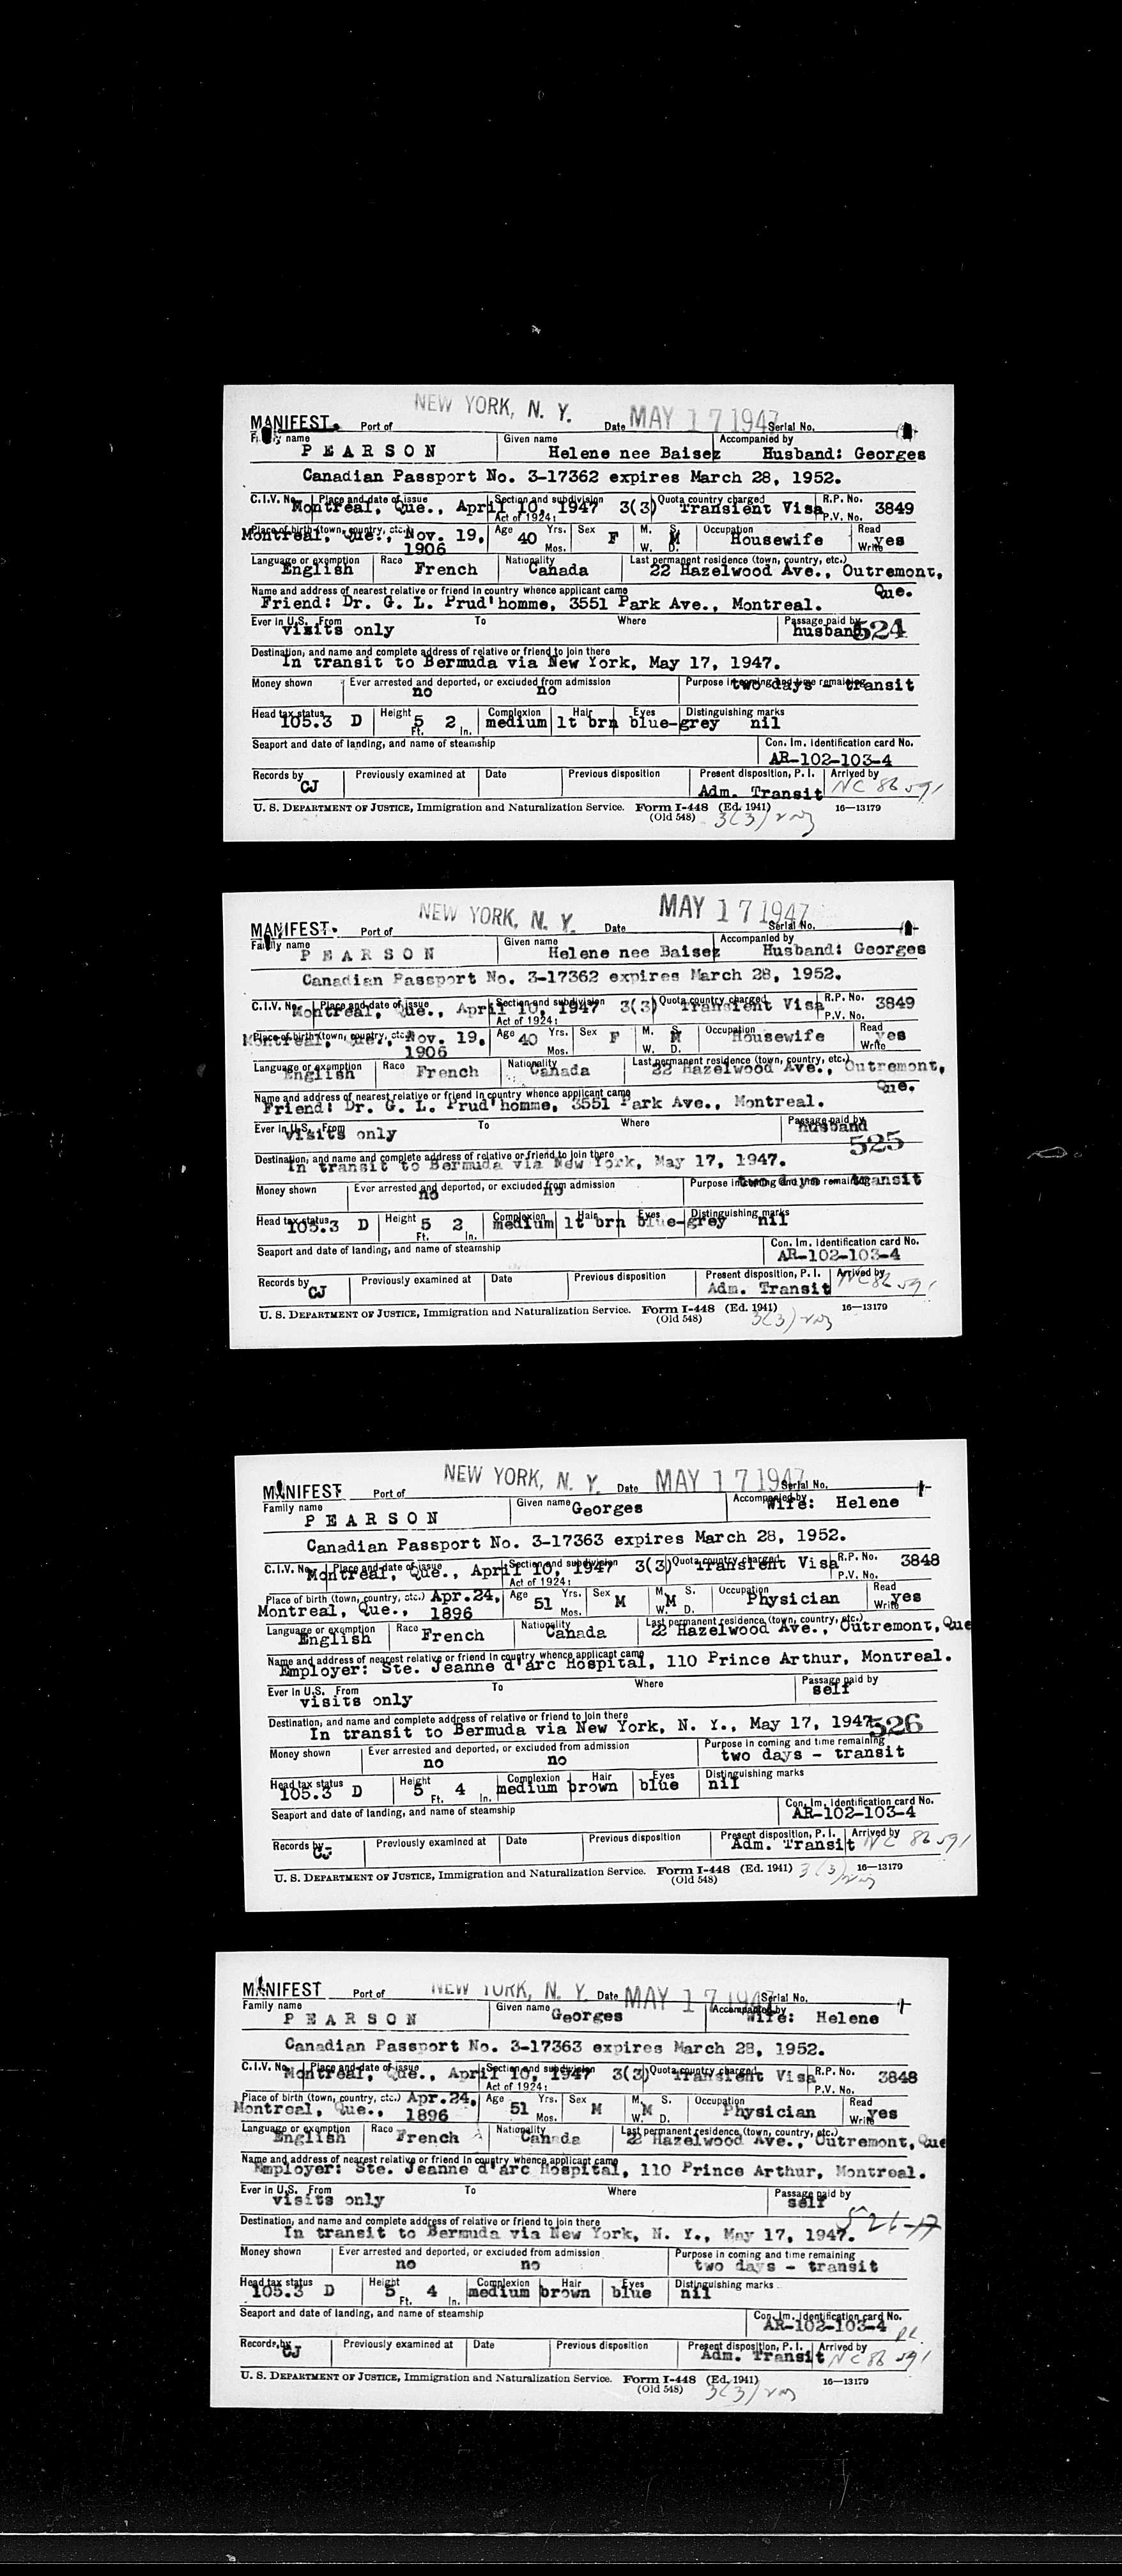 NEW YORK, N. Y. MAY 17 1947
MANIFEST Port of Date Serial No.
Family name Given name Accompanied by
PEARSON Helene nee Baisez Husband: Georges
Canadian Passport No. 3-17362 expires March 28, 1952.
C.I.V. No. Place and date of issue Section and subdivision Quota country charged R.P. No.
Montreal, Que., April 10, 1947 3(3) Transient Visa 3849
Act of 1924: P.V. No.
Place of birth (town, country, etc.) Age Yrs. Sex M. S. Occupation Read
Montreal, Que., Nov. 19, 40 F M Housewife yes
1906 Mos. W. D. Write
Language or exemption Race Nationality Last permanent residence (town, country, etc.)
English French Canada 22 Hazelwood Ave., Outremont,
Name and address of nearest relative or friend in country whence applicant came Que.
Friend: Dr. G. L. Prud'homme, 3551 Park Ave., Montreal.
Ever in U.S. From To Where Passage paid by
visits only husband 524
Destination, and name and complete address of relative or friend to join there
In transit to Bermuda via New York, May 17, 1947.
Money shown Ever arrested and deported, or excluded from admission Purpose in coming and time remaining
no no two days - transit
Head tax status Height Complexion Hair Eyes Distinguishing marks
105.3 D 5 2 medium lt brn blue-grey nil
Ft. In.
Seaport and date of landing, and name of steamship Con. Im. Identification card No.
AR-102-103-4
Records by Previously examined at Date Previous disposition Present disposition, P. I. Arrived by
CJ Adm. Transit NC 86591
U. S. DEPARTMENT OF JUSTICE, Immigration and Naturalization Service. Form I-448 (Ed. 1941) 16—13179
(Old 548) 3(3)
NEW YORK, N. Y. MAY 17 1947
MANIFEST Port of Date Serial No.
Family name Given name Accompanied by
PEARSON Helene nee Baisez Husband: Georges
Canadian Passport No. 3-17362 expires March 28, 1952.
C.I.V. No. Place and date of issue Section and subdivision Quota country charged R.P. No.
Montreal, Que., April 10, 1947 3(3) Transient Visa 3849
Act of 1924: P.V. No.
Place of birth (town, country, etc.) Age Yrs. Sex M. S. Occupation Read
Montreal, Que., Nov. 19, 40 F M Housewife yes
1906 Mos. W. D. Write
Language or exemption Race Nationality Last permanent residence (town, country, etc.)
English French Canada 22 Hazelwood Ave., Outremont,
Name and address of nearest relative or friend in country whence applicant came Que.
Friend: Dr. G. L. Prud'homme, 3551 Park Ave., Montreal.
Ever in U.S. From To Where Passage paid by
visits only husband
525
Destination, and name and complete address of relative or friend to join there
In transit to Bermuda via New York, May 17, 1947.
Money shown Ever arrested and deported, or excluded from admission Purpose in coming and time remaining
no no two days - transit
Head tax status Height Complexion Hair Eyes Distinguishing marks
105.3 D 5 2 medium lt brn blue-grey nil
Ft. In.
Seaport and date of landing, and name of steamship Con. Im. Identification card No.
AR-102-103-4
Records by Previously examined at Date Previous disposition Present disposition, P. I. Arrived by
CJ Adm. Transit NC 86591
U. S. DEPARTMENT OF JUSTICE, Immigration and Naturalization Service. Form I-448 (Ed. 1941) 16—13179
(Old 548) 3(3)
NEW YORK, N. Y. MAY 17 1947
MANIFEST Port of Date Serial No.
Family name Given name Accompanied by
PEARSON Georges Wife: Helene
Canadian Passport No. 3-17363 expires March 28, 1952.
C.I.V. No. Place and date of issue Section and subdivision Quota country charged R.P. No.
Montreal, Que., April 10, 1947 3(3) Transient Visa 3848
Act of 1924: P.V. No.
Place of birth (town, country, etc.) Apr.24, Age Yrs. Sex M. S. Occupation Read
Montreal, Que., 1896 51 M M Physician yes
Mos. W. D. Write
Language or exemption Race Nationality Last permanent residence (town, country, etc.)
English French Canada 22 Hazelwood Ave., Outremont, Que
Name and address of nearest relative or friend in country whence applicant came
Employer: Ste. Jeanne d'arc Hospital, 110 Prince Arthur, Montreal.
Ever in U.S. From To Where Passage paid by
visits only self
Destination, and name and complete address of relative or friend to join there
In transit to Bermuda via New York, N. Y., May 17, 1947. 526
Money shown Ever arrested and deported, or excluded from admission Purpose in coming and time remaining
no no two days - transit
Head tax status Height Complexion Hair Eyes Distinguishing marks
105.3 D 5 4 medium brown blue nil
Ft. In.
Seaport and date of landing, and name of steamship Con. Im. Identification card No.
AR-102-103-4
Records by Previously examined at Date Previous disposition Present disposition, P. I. Arrived by
CJ Adm. Transit NC 86591
U. S. DEPARTMENT OF JUSTICE, Immigration and Naturalization Service. Form I-448 (Ed. 1941) 16—13179
(Old 548) 3(3)
NEW YORK, N. Y. MAY 17 1947
MANIFEST Port of Date Serial No.
Family name Given name Accompanied by
PEARSON Georges Wife: Helene
Canadian Passport No. 3-17363 expires March 28, 1952.
C.I.V. No. Place and date of issue Section and subdivision Quota country charged R.P. No.
Montreal, Que., April 10, 1947 3(3) Transient Visa 3848
Act of 1924: P.V. No.
Place of birth (town, country, etc.) Apr.24, Age Yrs. Sex M. S. Occupation Read
Montreal, Que., 1896 51 M M Physician yes
Mos. W. D. Write
Language or exemption Race Nationality Last permanent residence (town, country, etc.)
English French Canada 22 Hazelwood Ave., Outremont, Que
Name and address of nearest relative or friend in country whence applicant came
Employer: Ste. Jeanne d'arc Hospital, 110 Prince Arthur, Montreal.
Ever in U.S. From To Where Passage paid by
visits only self
Destination, and name and complete address of relative or friend to join there 526-17
In transit to Bermuda via New York, N. Y., May 17, 1947.
Money shown Ever arrested and deported, or excluded from admission Purpose in coming and time remaining
no no two days - transit
Head tax status Height Complexion Hair Eyes Distinguishing marks
105.3 D 5 4 medium brown blue nil
Ft. In.
Seaport and date of landing, and name of steamship Con. Im. Identification card No.
AR-102-103-4
Records by Previously examined at Date Previous disposition Present disposition, P. I. Arrived by
CJ Adm. Transit NC 86591
U. S. DEPARTMENT OF JUSTICE, Immigration and Naturalization Service. Form I-448 (Ed. 1941) 16—13179
(Old 548) 3(3)